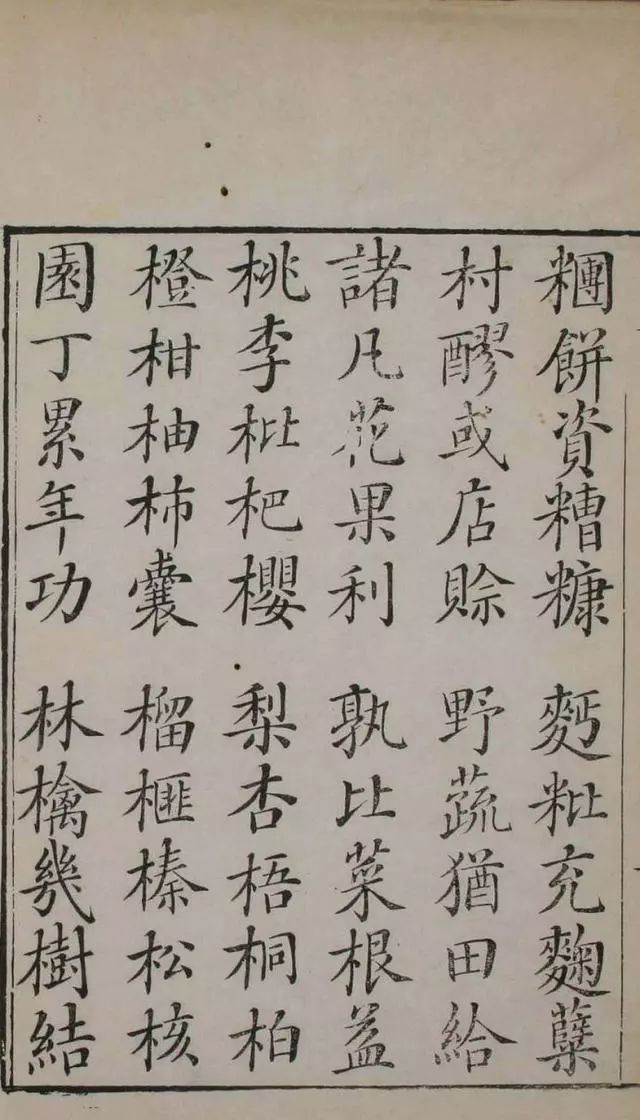 糰餅資糟糠 麫粃充麴糱
村醪或店賒 野蔬猶田給
諸凡花果利 孰比菜根益
桃李枇杷櫻 梨杏梧桐柏
橙柑柚柿囊 榴榧榛松核
園丁累年功 林檎幾樹結